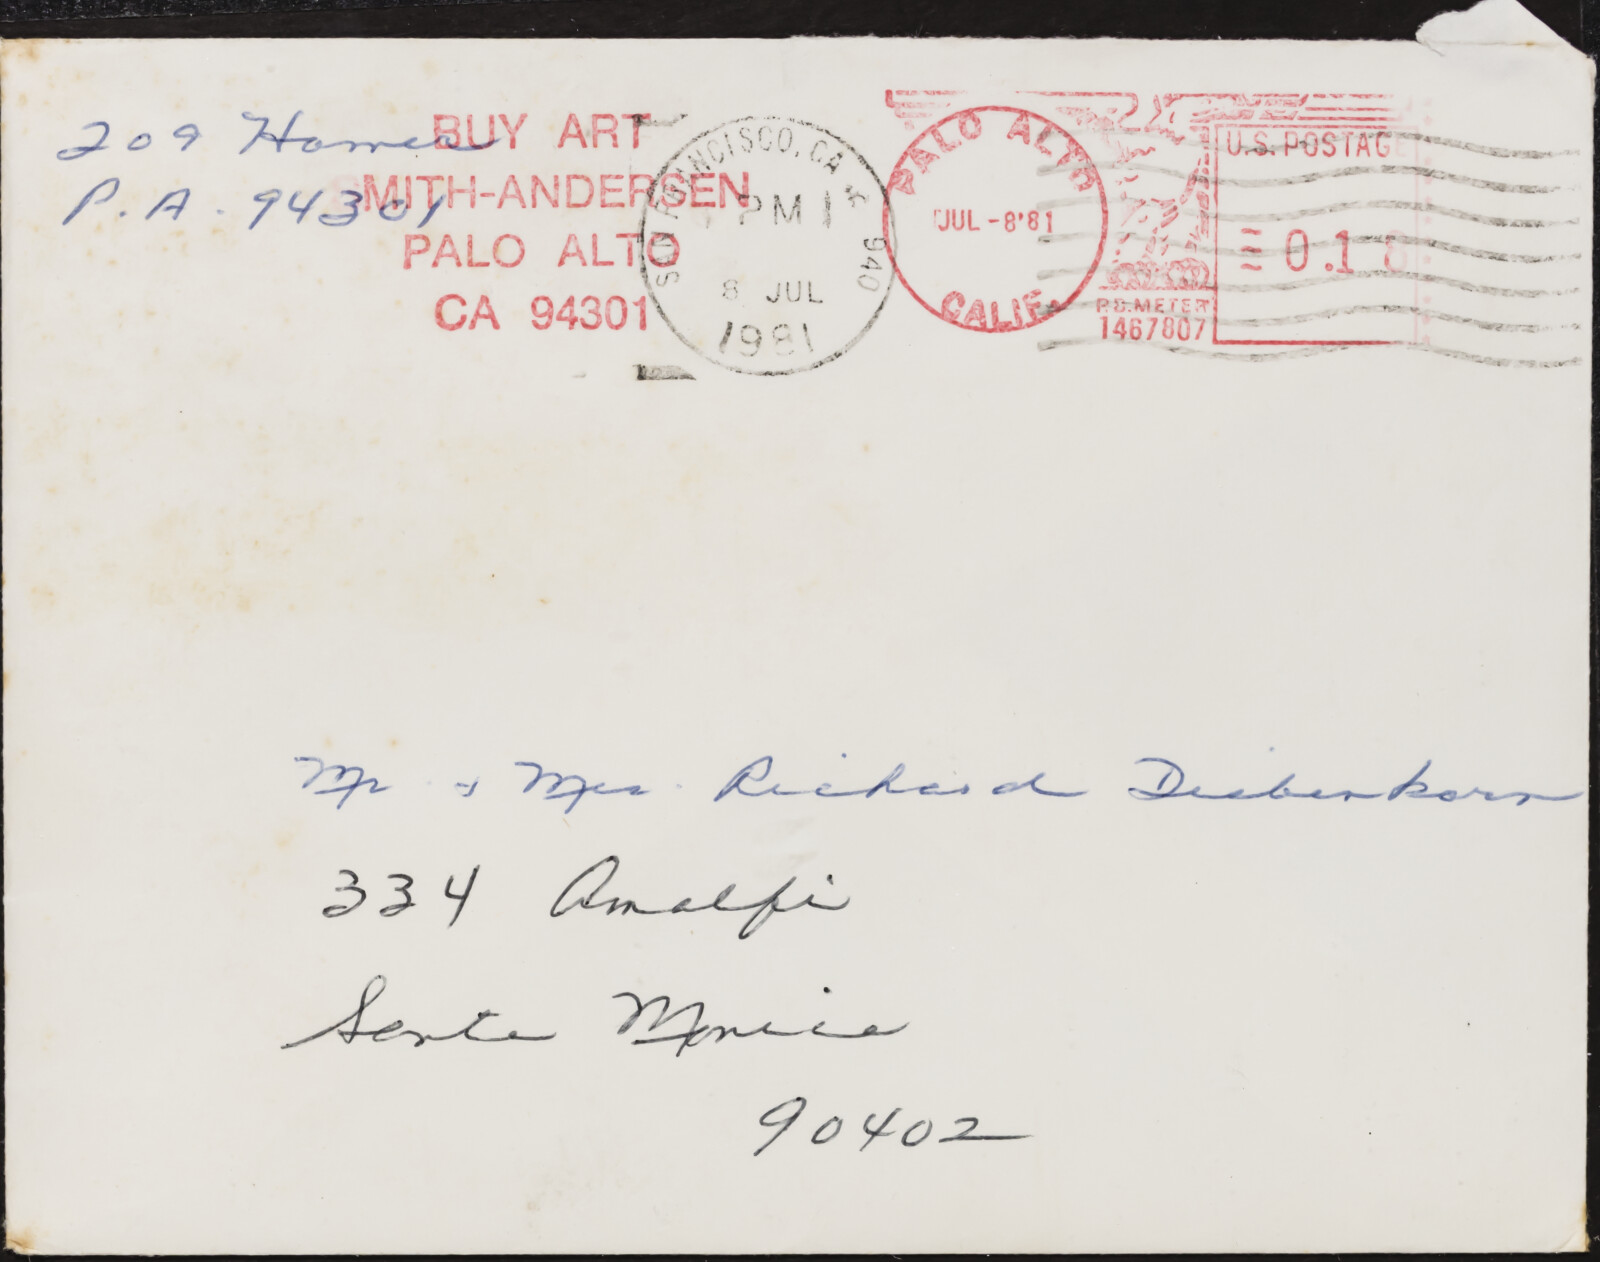 209 Homer
P.A. 94301
BUY ART
SMITH-ANDERSEN
PALO ALTO
CA 94301
SAN FRANCISCO, CA 940
PM
8 JUL
1981
PALO ALTO
JUL-8'81
CALIF
U.S. POSTAGE
0.18
P.B. METER
1467807
Mr & Mrs. Richard Diebenkorn
334 Amalfi
Santa Monica
90402